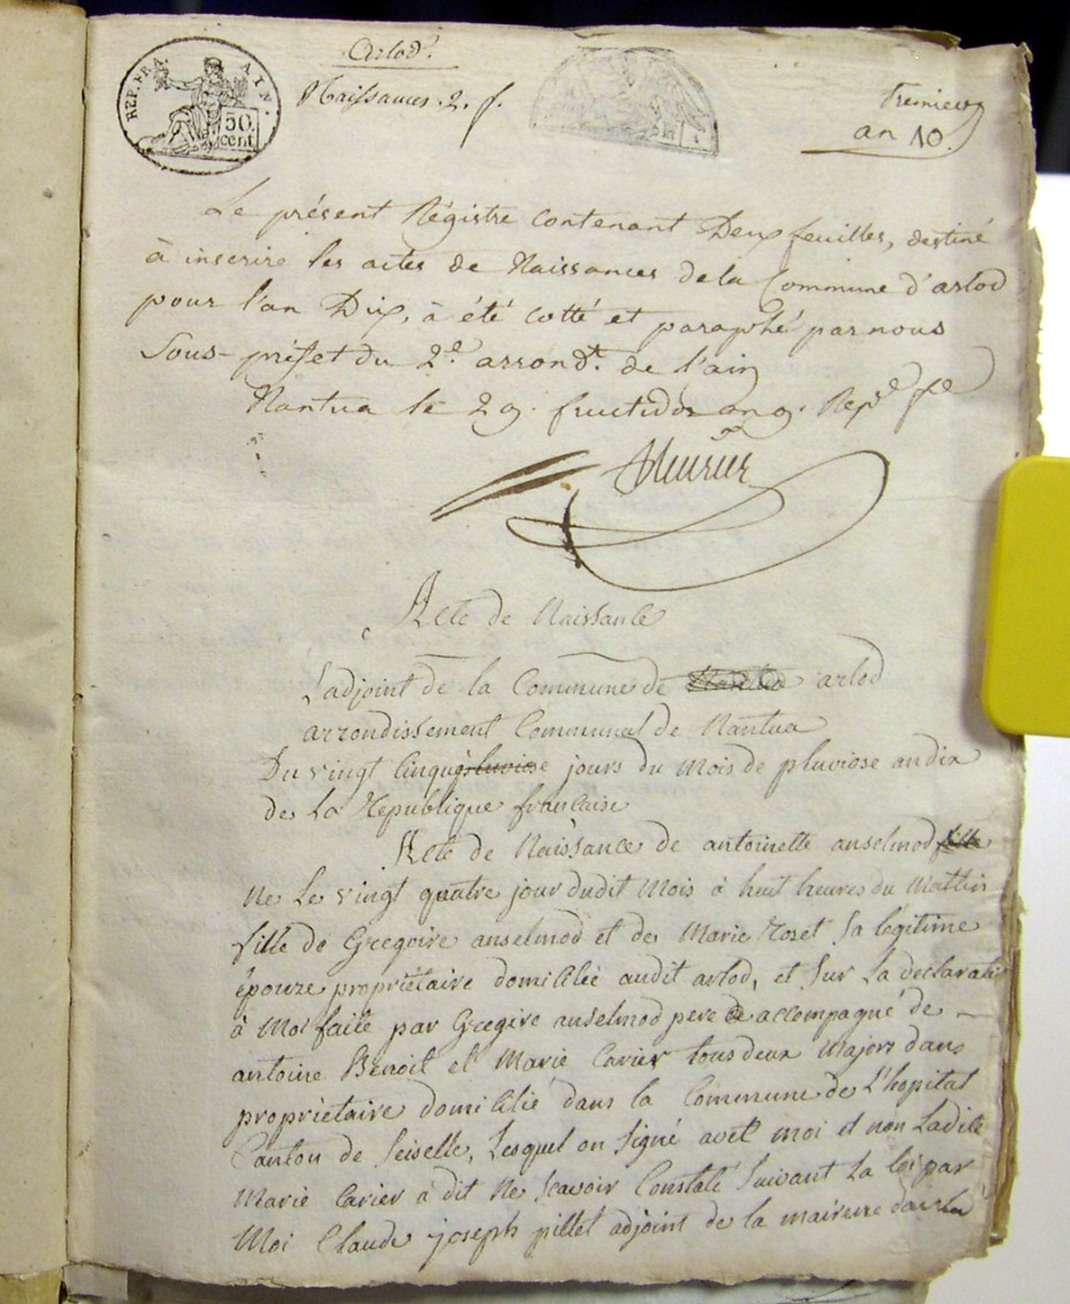 REP. FRA. AIN.
50 cent
Arlod.
Naissances. 2. f.
an 10.
Le présent Régistre contenant Deux feuilles, destiné
à inscrire les actes de Naissances de la Commune d'arlod
pour l'an Dix, à été cotté et paraphé par nous
Sous-préfet du 2e. arrondt. de l'ain
Nantua le 29. fructidor an 9. Repe fe
Acte de Naissance
L'adjoint de la Commune de arlod
arrondissement Communal de Nantua
Du vingt Cinque pluviose jours du mois de pluviose an dix
de La Republique francaise
Acte de Naissance de antoinette anselmod fille
Ne Le vingt quatre jour dudit Mois à huit heures du Mattin
fille de Gregoire anselmod et de Marie Rozet Sa legitime
épouze propriétaire domicilié audit arlod, et Sur La declaration
à Moi faite par Gregoire anselmod pere accompagné de
antoine Benoit et Marie Carier tous deux Majors dans
propriétaire domicilié dans la Commune de L'hopital
Canton de Seiselle, Lesquel on Signé avec moi et non Ladite
Marie Carier à dit Ne Scavoir Constaté Suivant La loi par
Moi Claude joseph pillet adjoint de la mairerie darlod